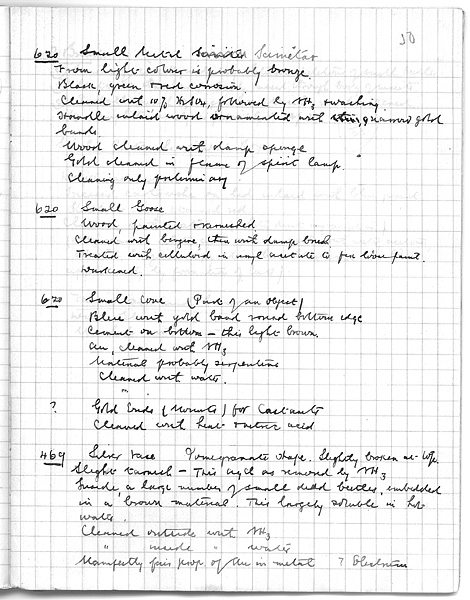 50
620 Small metal Scimitar
From light colour is probably bronze.
Black, green & red corrosion.
Cleaned with 10% H2SO4, followed by NH3 & washing.
Handle inlaid wood ornamented with narrow gold
bands.
Wood cleaned with damp sponge
Gold cleaned in flame of spirit lamp.
Cleaning only preliminary
620 Small Goose
Wood, painted & varnished.
Cleaned with benzine, then with damp brush
Treated with celluloid in amyl acetate to fix loose paint.
Waxed.
620 Small Cone (Part of an object)
Blue with gold band round bottom edge
Cement on bottom - this light brown.
cleaned with NH3
Material probably serpentine
Cleaned with water.
? Gold Ends (Mounts) for Castanets
Cleaned with heat & nitric acid
469 Silver vase Pomegranate shape. Slightly broken at top.
Slight tarnish - This as removed by NH3
Inside, a large number of small dead beetles, embedded
in a brown material. This largely soluble in hot
water.
Cleaned outside with NH3
" inside " water
fair prop. of in metal ? Electrum